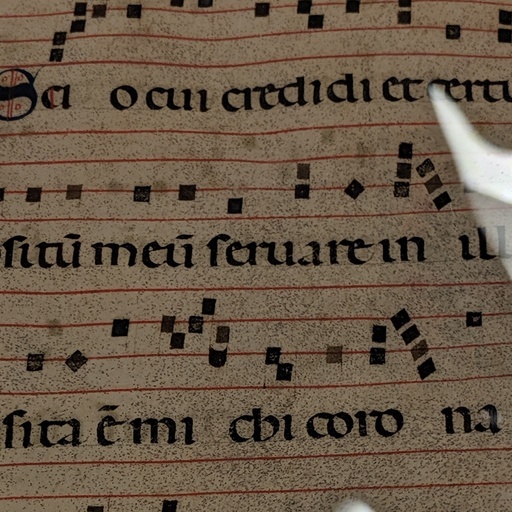 Sci o cui credidi et certu
situ̅ meu̅ seruare in ill
sita e̅ mi chi coro na